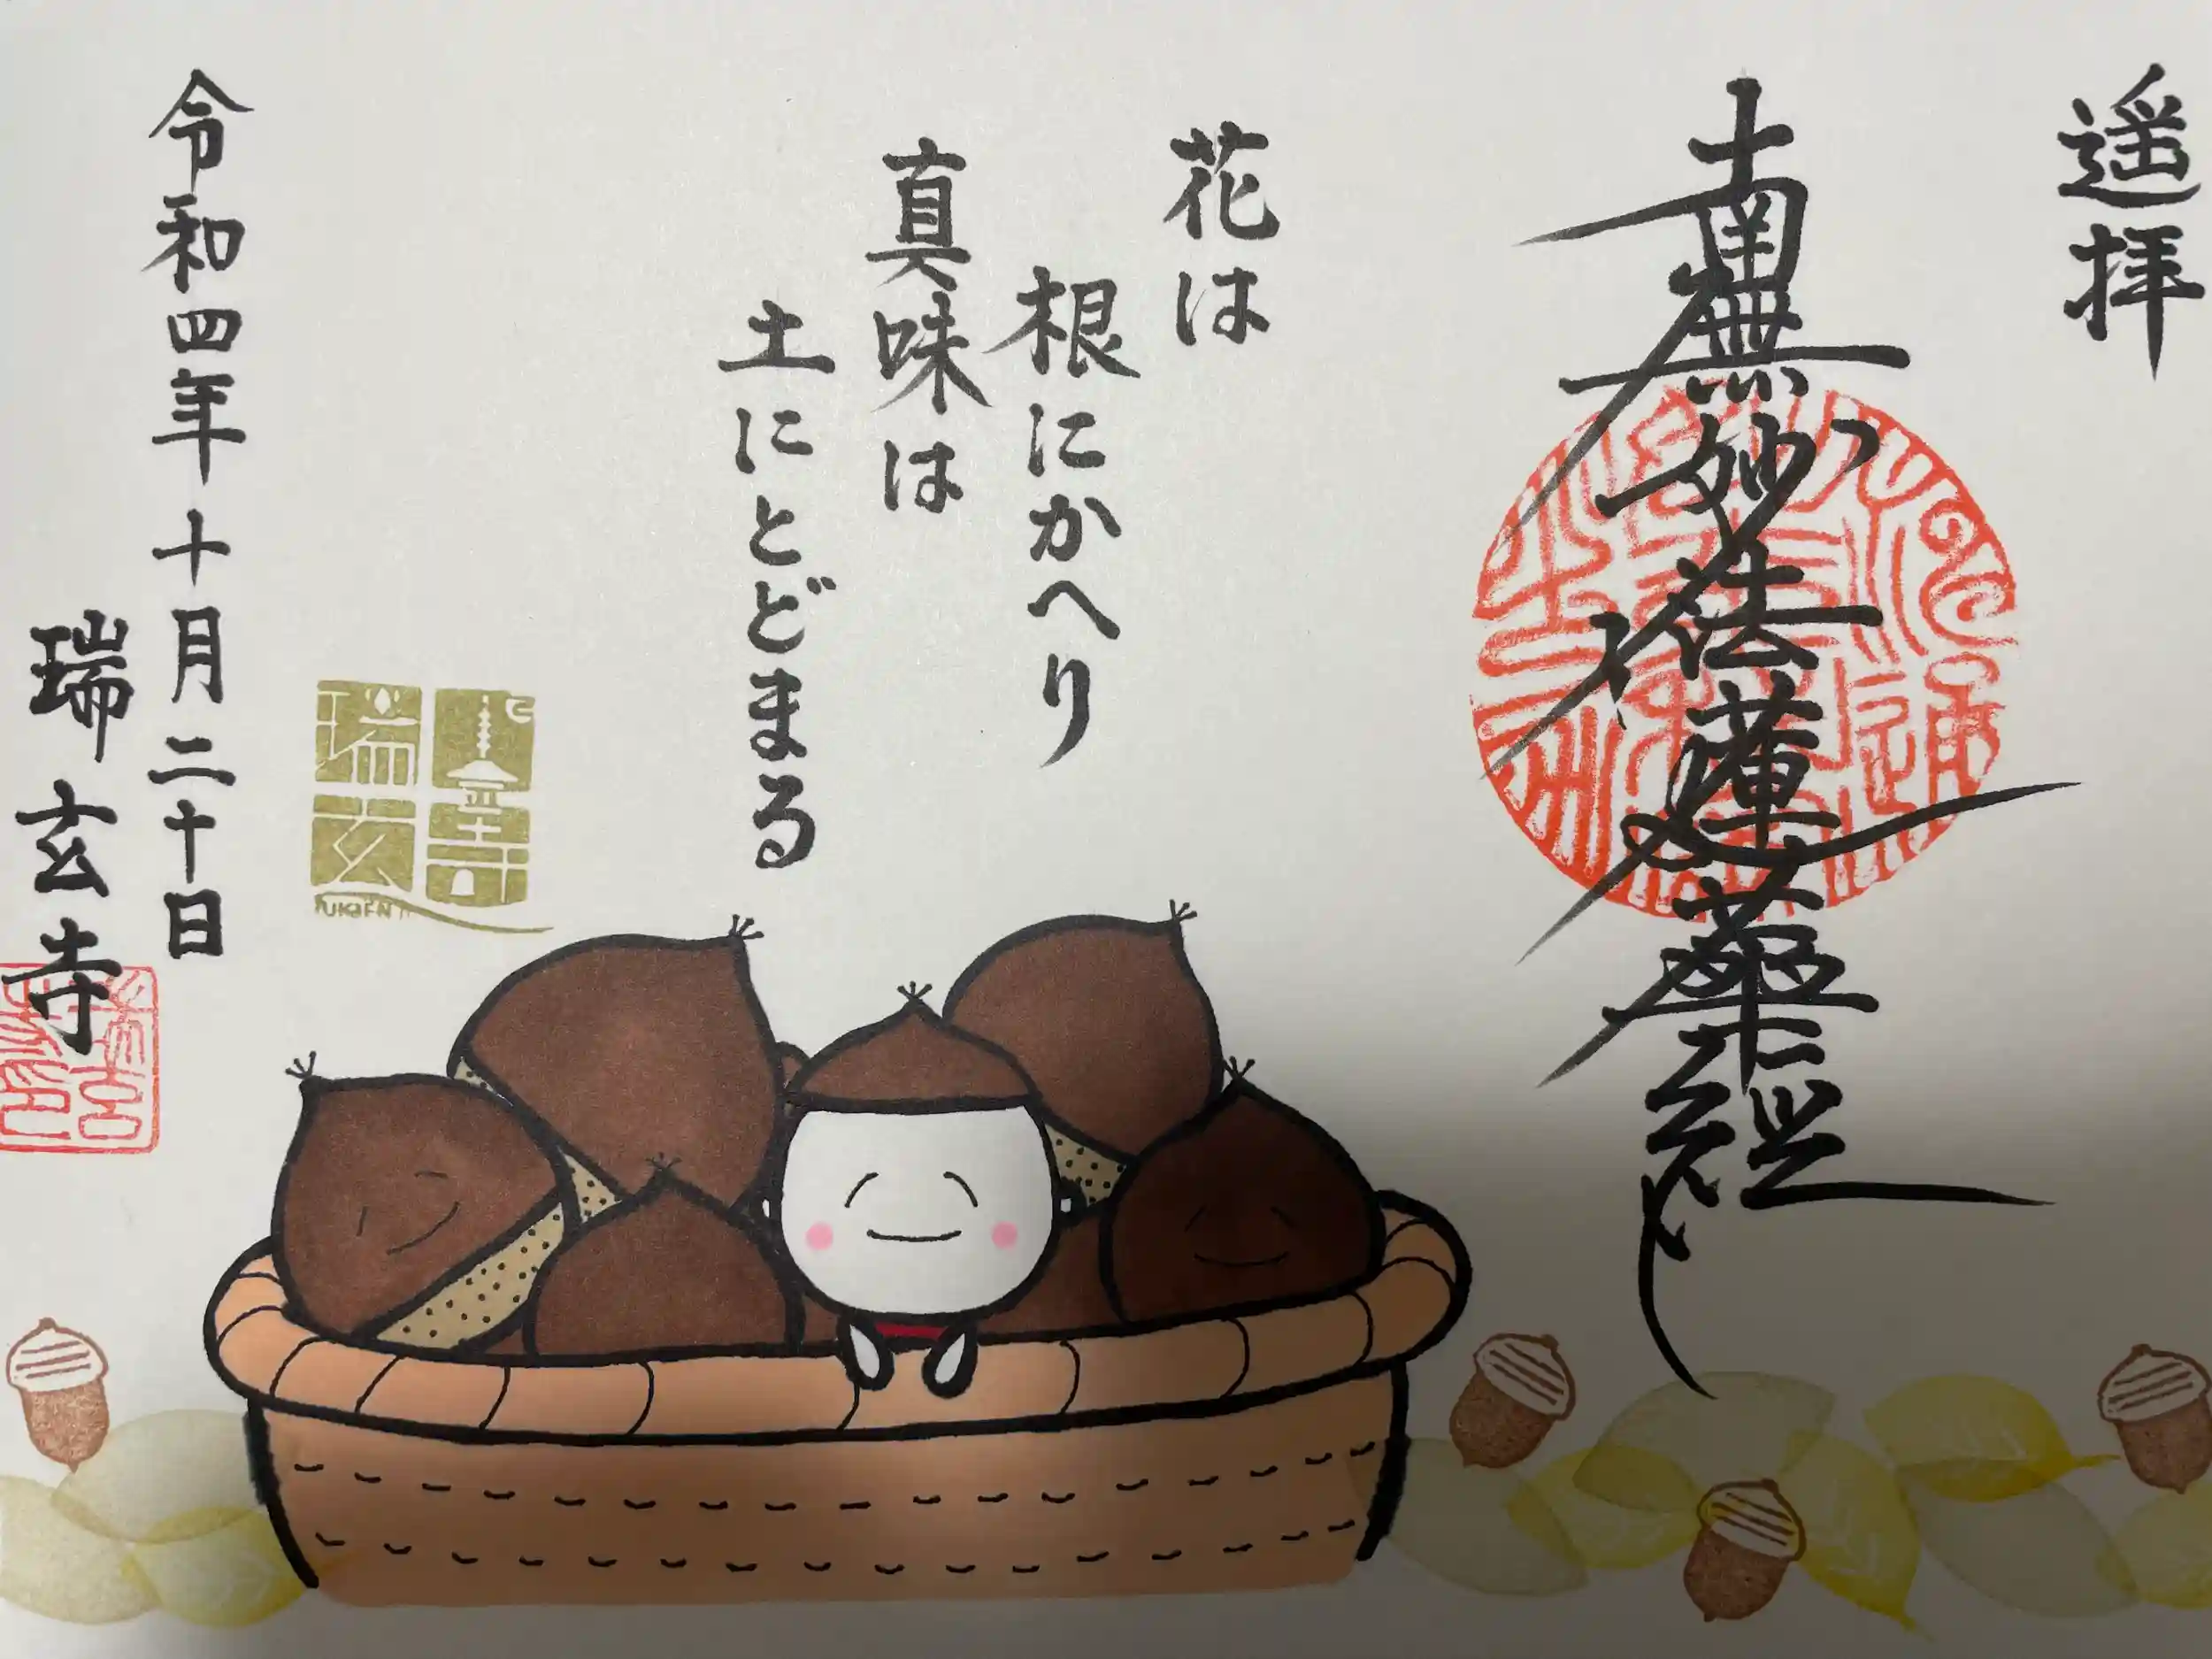 遥拝
南無妙法蓮華経
花は
根にかへり
真味は
土にとどまる
瑞玄寺
FUKUEN
令和四年十月二十日
瑞玄寺